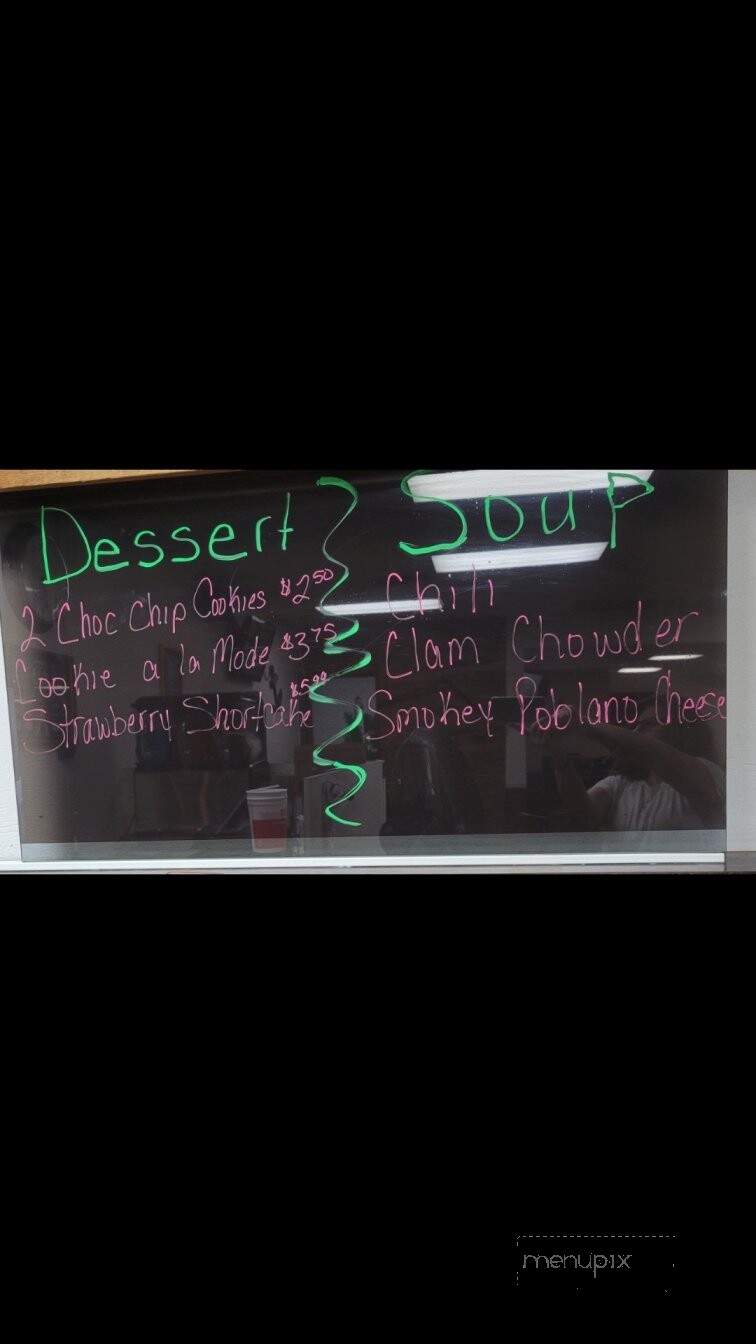 Dessert
2 Choc Chip Cookies $2.50
Cookie a la Mode $3.75
Strawberry Shortcake
Soup
Chili
Clam Chowder
Smokey Poblano Cheese
menupix